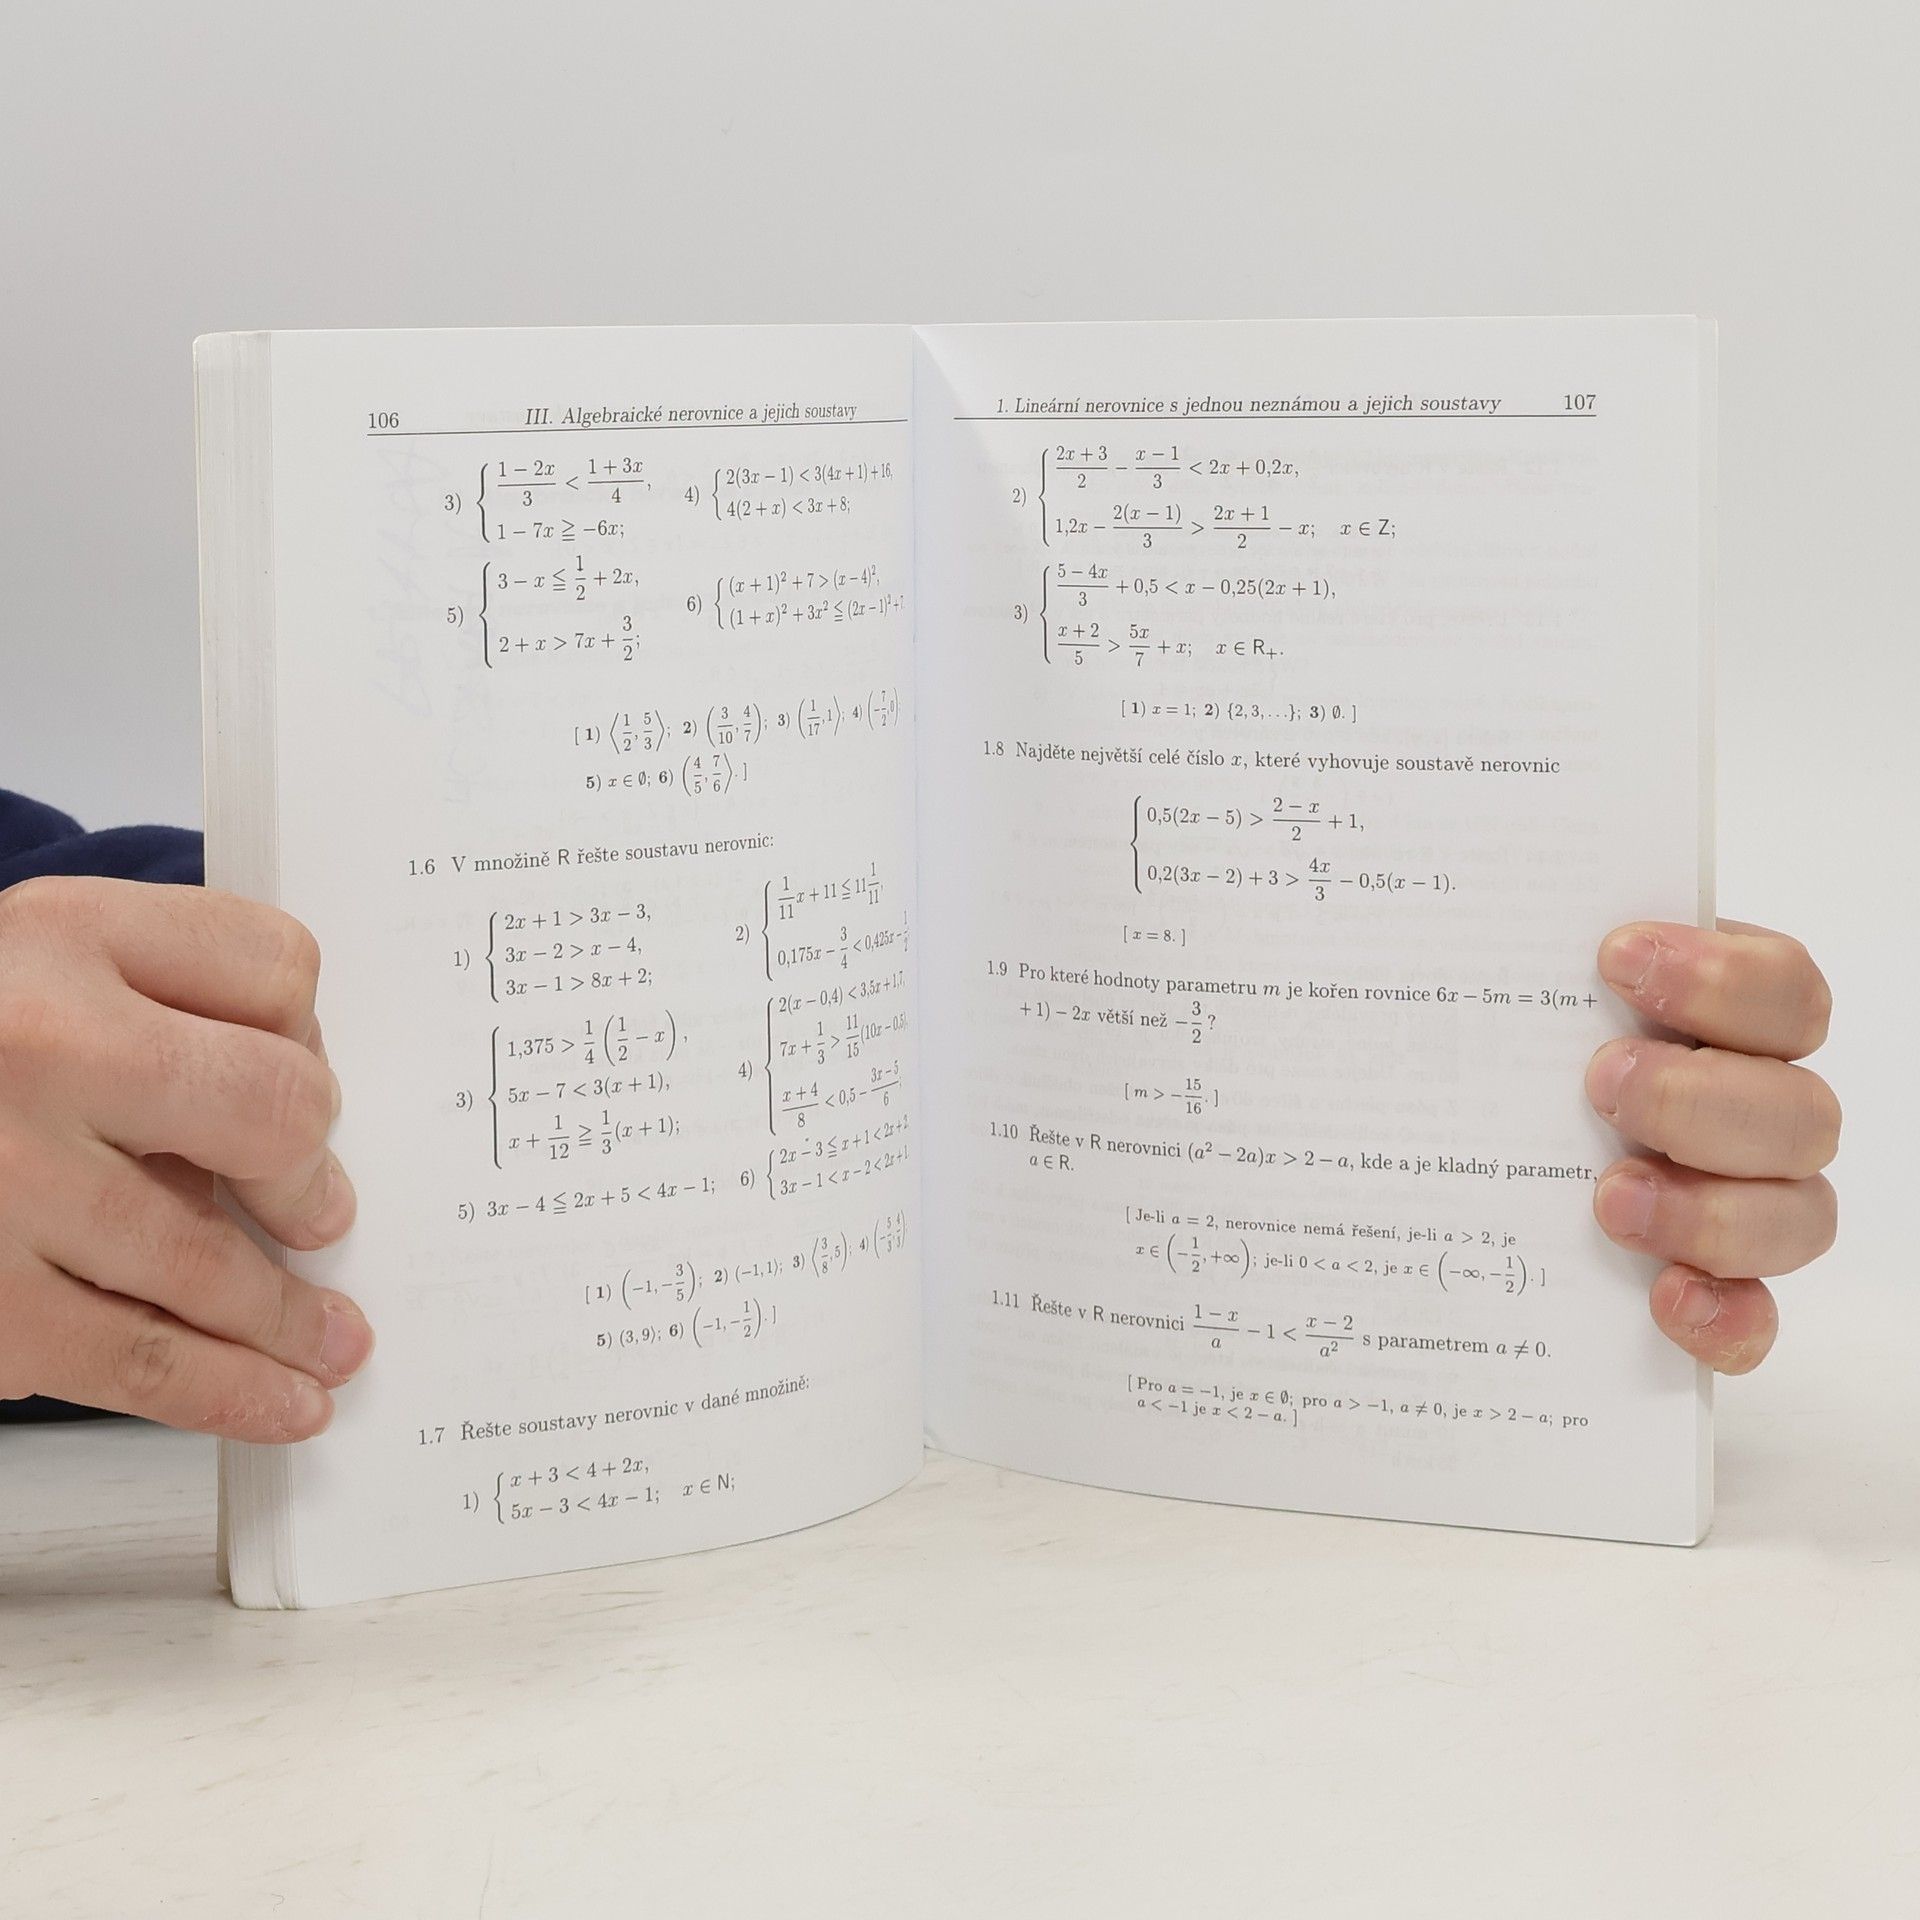 106 III. Algebraické nerovnice a jejich soustavy
3) { (1 − 2x)/3 < (1 + 3x)/4,
1 − 7x ≧ −6x;
4) { 2(3x − 1) < 3(4x + 1) + 16,
4(2 + x) < 3x + 8;
5) { 3 − x ≦ 1/2 + 2x,
2 + x > 7x + 3/2;
6) { (x + 1)² + 7 > (x − 4)²,
(1 + x)² + 3x² ≦ (2x − 1)² + 7.
[ 1) ⟨1/2, 5/3⟩; 2) (3/10, 4/7); 3) (1/17, 1⟩; 4) (−7/2, 0)
5) x ∈ ∅; 6) (4/5, 7/6⟩. ]
1.6 V množině R řešte soustavu nerovnic:
1) { 2x + 1 > 3x − 3,
3x − 2 > x − 4,
3x − 1 > 8x + 2;
2) { 1/11 x + 11 ≦ 11 1/11,
0,175x − 3/4 < 0,425x − 1/2
3) { 1,375 > 1/4 (1/2 − x),
5x − 7 < 3(x + 1),
x + 1/12 ≧ 1/3 (x + 1);
4) { 2(x − 0,4) < 3,5x + 1,7,
7x + 1/3 > 11/15 (10x − 0,5),
(x + 4)/8 < 0,5 − (3x − 5)/6;
5) 3x − 4 ≦ 2x + 5 < 4x − 1;
6) { 2x − 3 ≦ x + 1 < 2x + 2
3x − 1 < x − 2 < 2x + 1
[ 1) (−1, −3/5); 2) (−1, 1⟩; 3) ⟨3/8, 5); 4) (−5/3, 4/3)
5) (3, 9⟩; 6) (−1, −1/2). ]
1.7 Řešte soustavy nerovnic v dané množině:
1) { x + 3 < 4 + 2x,
5x − 3 < 4x − 1; x ∈ N;
1. Lineární nerovnice s jednou neznámou a jejich soustavy 107
2) { (2x + 3)/2 − (x − 1)/3 < 2x + 0,2x,
1,2x − 2(x − 1)/3 > (2x + 1)/2 − x; x ∈ Z;
3) { (5 − 4x)/3 + 0,5 < x − 0,25(2x + 1),
(x + 2)/5 > 5x/7 + x; x ∈ R₊.
[ 1) x = 1; 2) {2, 3, …}; 3) ∅. ]
1.8 Najděte největší celé číslo x, které vyhovuje soustavě nerovnic
{ 0,5(2x − 5) > (2 − x)/2 + 1,
0,2(3x − 2) + 3 > 4x/3 − 0,5(x − 1).
[ x = 8. ]
1.9 Pro které hodnoty parametru m je kořen rovnice 6x − 5m = 3(m +
+ 1) − 2x větší než −3/2 ?
[ m > −15/16. ]
1.10 Řešte v R nerovnici (a² − 2a)x > 2 − a, kde a je kladný parametr,
a ∈ R.
[ Je-li a = 2, nerovnice nemá řešení, je-li a > 2, je
x ∈ (−1/2, +∞); je-li 0 < a < 2, je x ∈ (−∞, −1/2). ]
1.11 Řešte v R nerovnici (1 − x)/a − 1 < (x − 2)/a² s parametrem a ≠ 0.
[ Pro a = −1, je x ∈ ∅; pro a > −1, a ≠ 0, je x > 2 − a; pro
a < −1 je x < 2 − a. ]